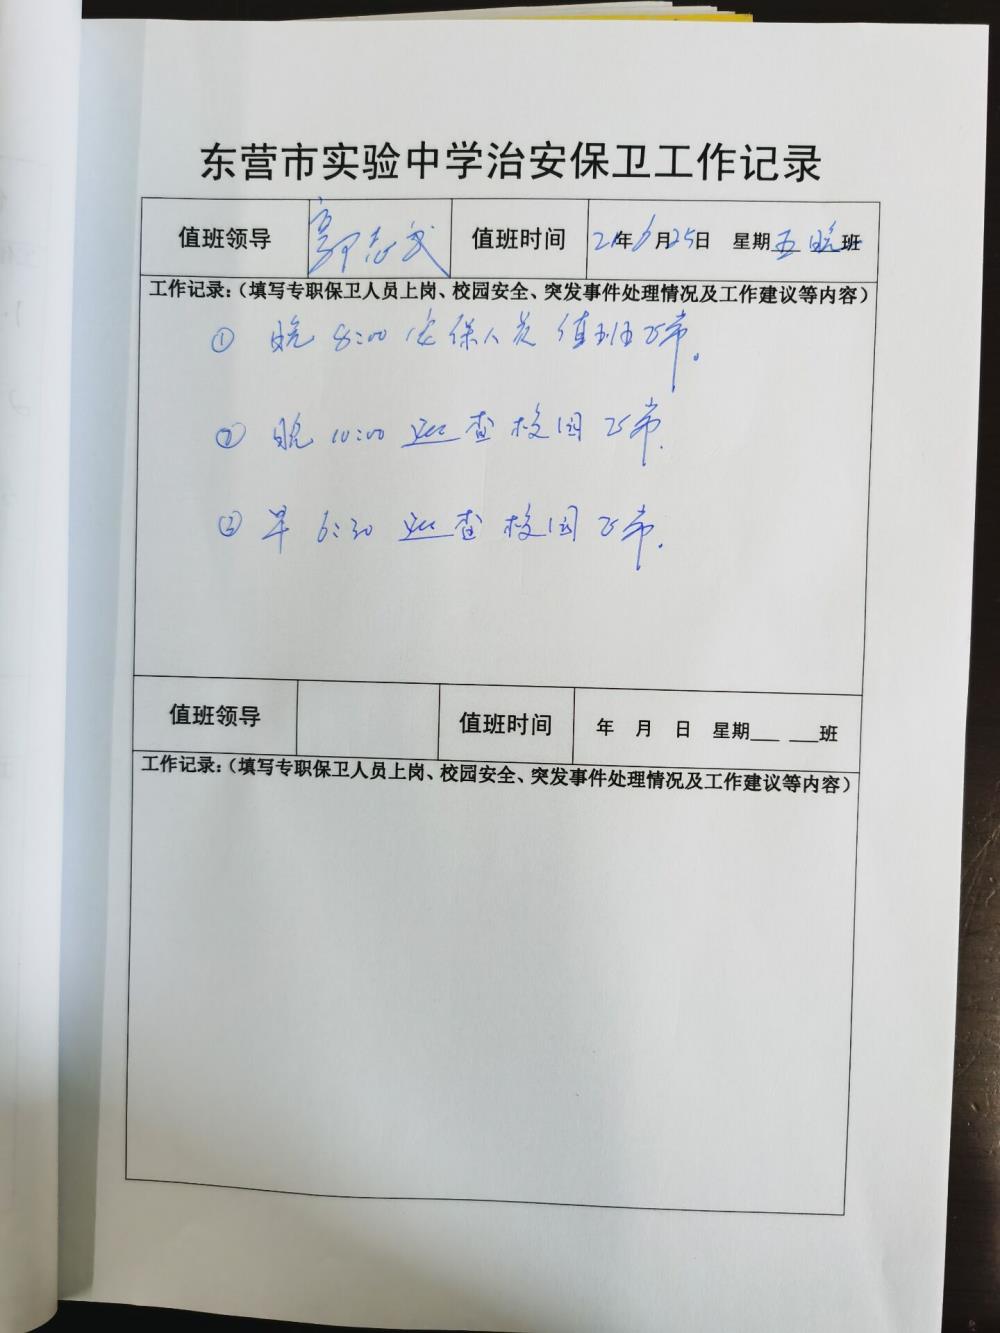 东营市实验中学治安保卫工作记录
值班领导 郭志武 值班时间 21年6月25日 星期五 晚班
工作记录：（填写专职保卫人员上岗、校园安全、突发事件处理情况及工作建议等内容）
① 晚 8:00 安保人员值班正常。
② 晚 10:00 巡查校园正常.
③ 早 6:30 巡查校园正常.
值班领导 值班时间 年 月 日 星期___ ___班
工作记录：（填写专职保卫人员上岗、校园安全、突发事件处理情况及工作建议等内容）